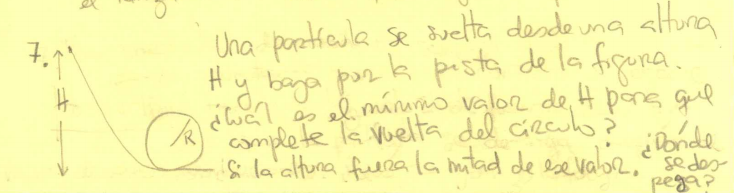 7. Una partícula se suelta desde una altura
H y baja por la pista de la figura.
H
¿Cuál es el mínimo valor de H para que
complete la vuelta del círculo?
R
Si la altura fuera la mitad de ese valor. ¿Dónde
se des-
pega?